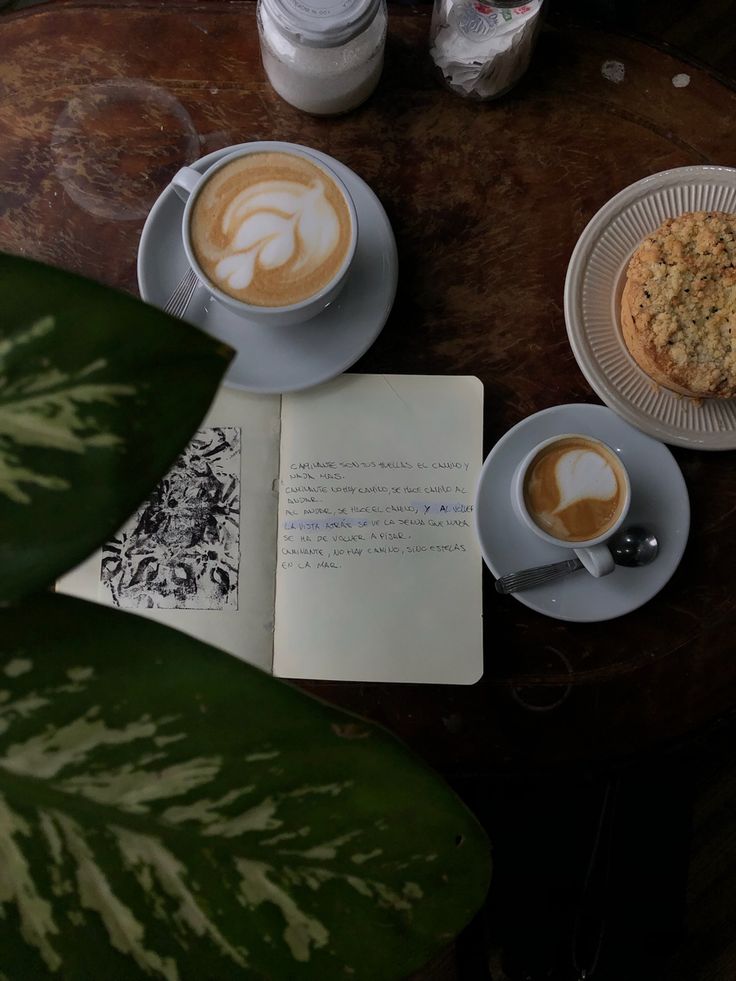 CAMINANTE SON TUS HUELLAS EL CAMINO Y
NADA MAS.
CAMINANTE NO HAY CAMINO, SE HACE CAMINO AL
ANDAR.
AL ANDAR, SE HACE EL CAMINO, Y AL VOLVER
LA VISTA ATRÁS SE VE LA SENDA QUE NUNCA
SE HA DE VOLVER A PISAR.
CAMINANTE, NO HAY CAMINO, SINO ESTELAS
EN LA MAR.